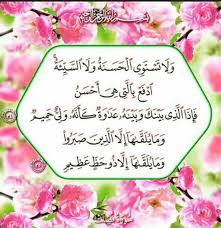 وَلَا تَسْتَوِي الْحَسَنَةُ وَلَا السَّيِّئَةُ
ادْفَعْ بِالَّتِي هِيَ أَحْسَنُ
فَإِذَا الَّذِي بَيْنَكَ وَبَيْنَهُ عَدَاوَةٌ كَأَنَّهُ وَلِيٌّ حَمِيمٌ
وَمَا يُلَقَّاهَا إِلَّا الَّذِينَ صَبَرُوا
وَمَا يُلَقَّاهَا إِلَّا ذُو حَظٍّ عَظِيمٍ